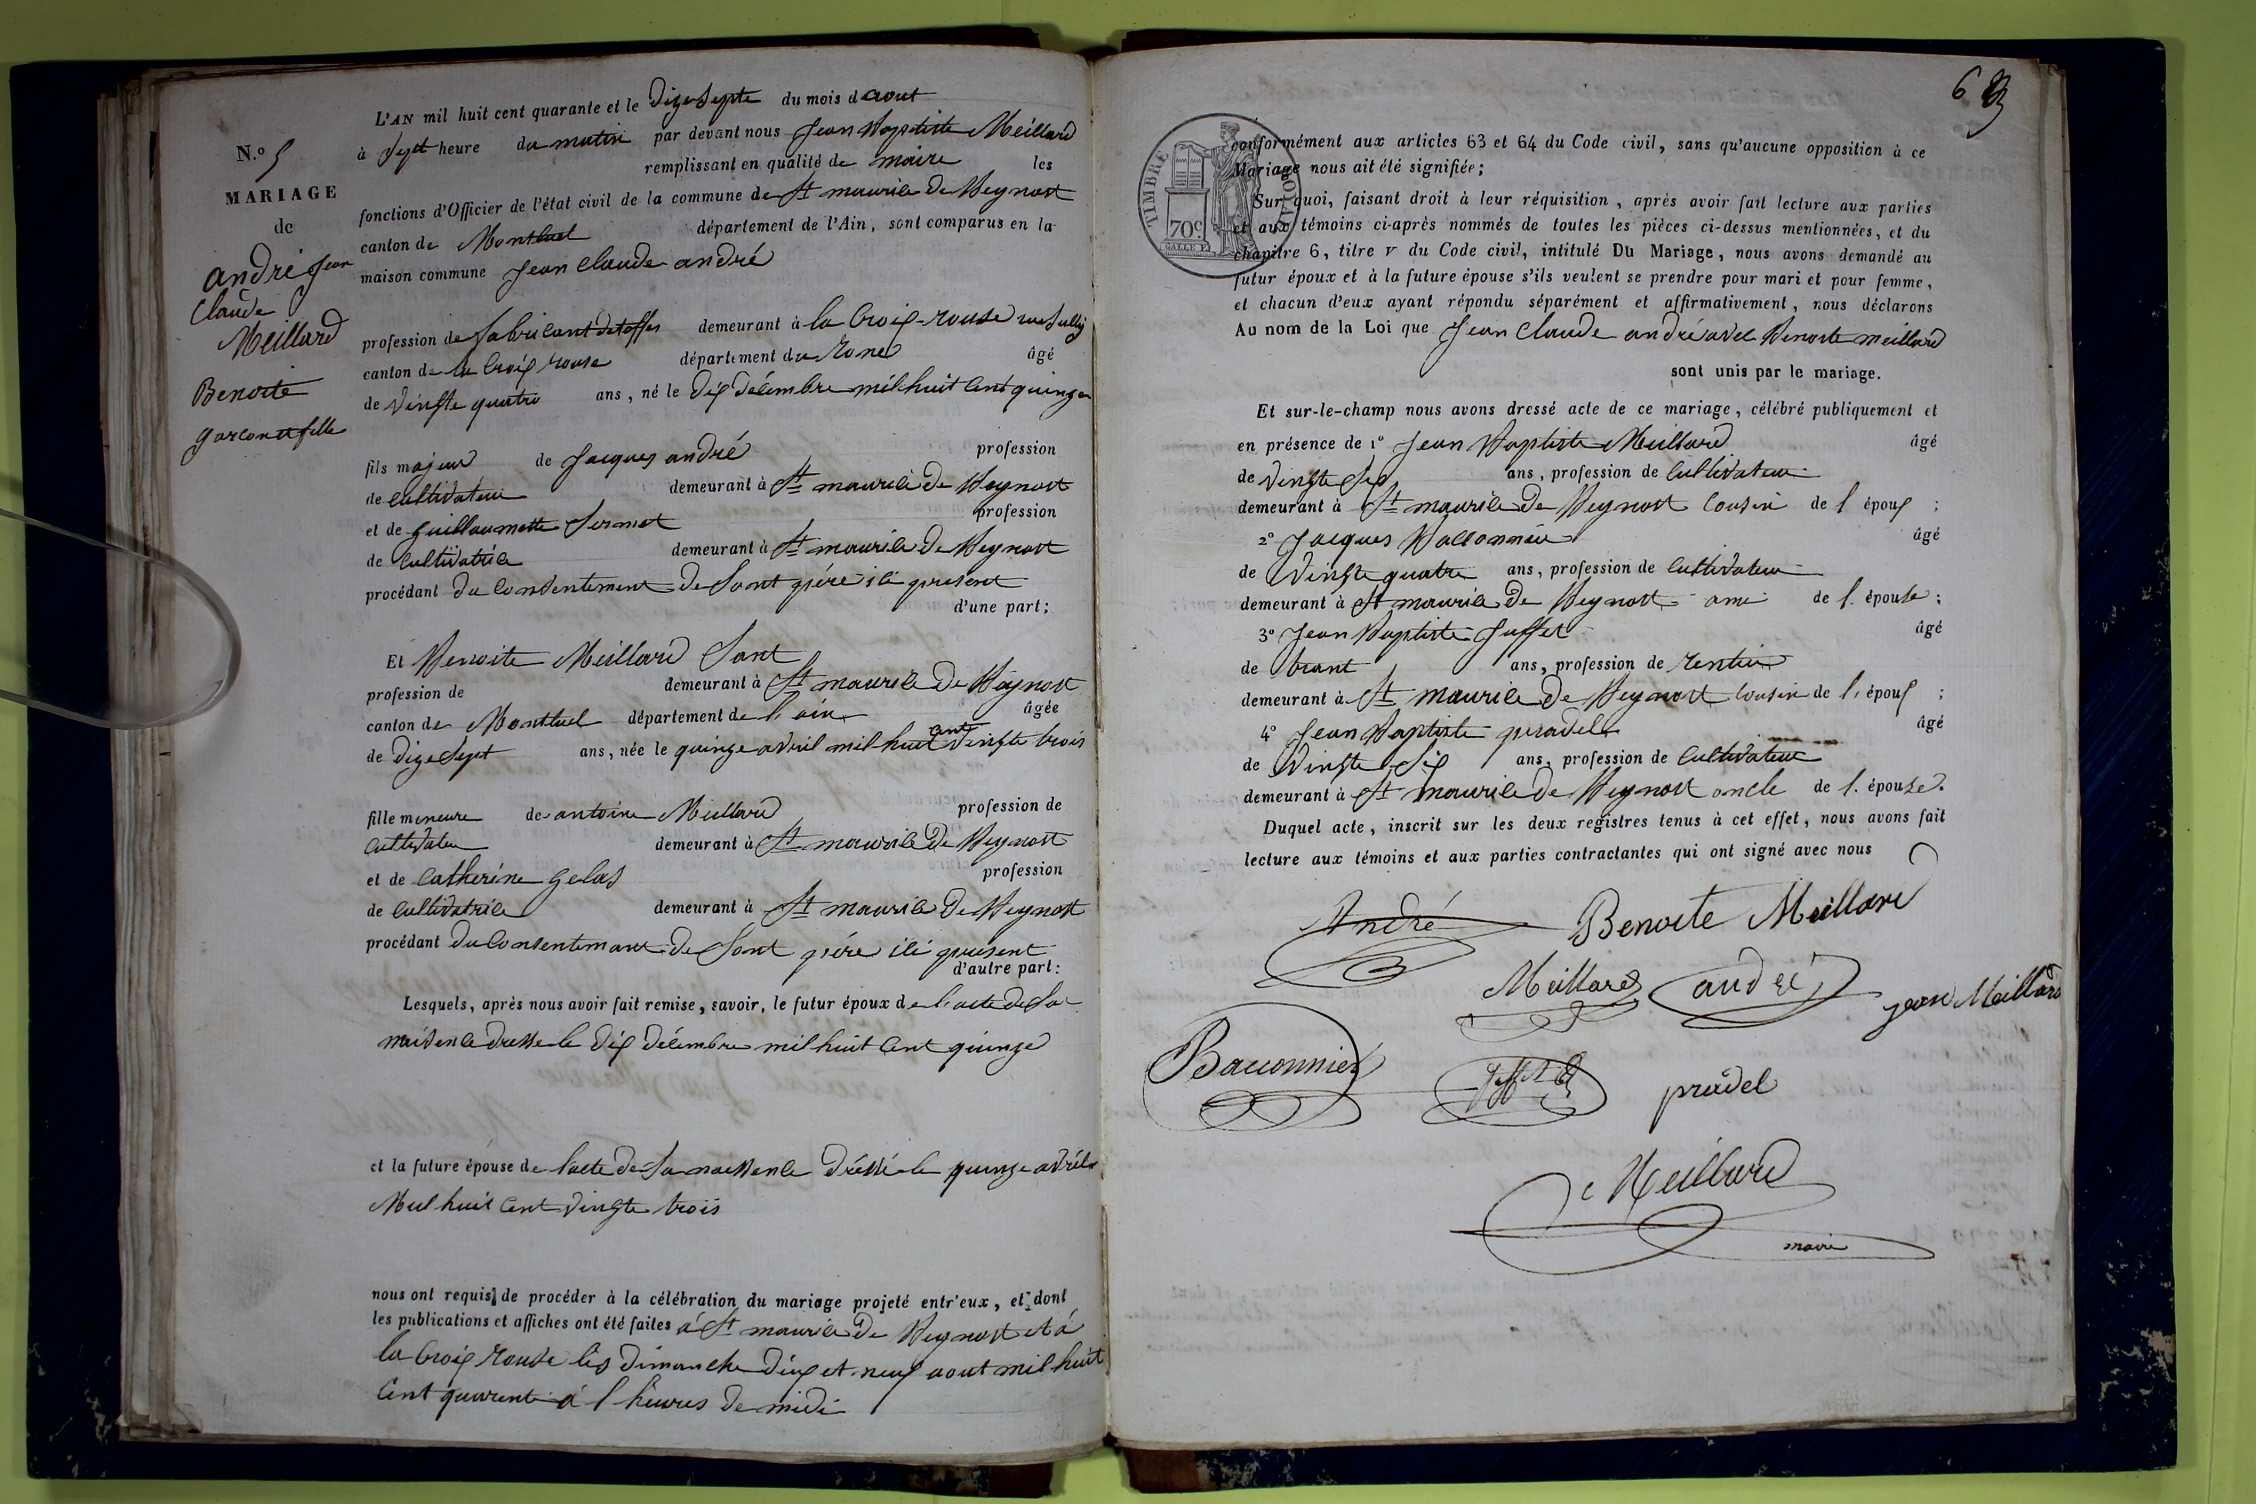 L'AN mil huit cent quarante et le dize septe du mois d aout
à sept heure du matin par devant nous Jean Baptiste Meillard
remplissant en qualité de maire les
fonctions d'Officier de l'état civil de la commune de St maurice de Beynost
canton de Montluel département de l'Ain, sont comparus en la
maison commune Jean Claude andré
N.o 5
MARIAGE
de
andré Jean
Claude
Meillard
Benoite
garcon et fille
profession de fabricant detoffes demeurant à la Croix-rouse rue Sully
canton de la Croix rouse département du Rone âgé
de vingte quatre ans, né le dix décembre mil huit cent quinze
fils majeur de Jacques andré profession
de cultivateur demeurant à St maurice de Beynost
et de guillaumette Sermet profession
de cultivatrice demeurant à St maurice de Beynost
procédant du consentement de sont père ici present
d'une part;
Et Benoite Meillard sant
profession de demeurant à St maurice de Beynost
canton de Montluel département de l'ain âgée
de dize sept ans, née le quinze avril mil huit cent vingte trois
fille mineure de antoine Meillard profession de
cultivateur demeurant à St maurice de Beynost
et de catherine gelas profession
de cultivatrice demeurant à St maurice de Beynost
procédant du consentemant de sont père ici present
d'autre part:
Lesquels, après nous avoir fait remise, savoir, le futur époux de l'acte de sa
naisence dresse le dix décembre mil huit cent quinze
et la future épouse de l'acte de sa naissence dréssé le quinze avril
Mil huit cent vingte trois
nous ont requis de procéder à la célébration du mariage projeté entr'eux, et dont
les publications et affiches ont été faites à St maurice de Beynost et à
la Croix rouse les dimanche deux et neuf aout mil huit
cent quarente à l heures de midi
6
conformément aux articles 63 et 64 du Code civil, sans qu'aucune opposition à ce
Mariage nous ait été signifiée;
TIMBRE ROYAL
70c
Sur quoi, faisant droit à leur réquisition, après avoir fait lecture aux parties
et aux témoins ci-après nommés de toutes les pièces ci-dessus mentionnées, et du
chapitre 6, titre v du Code civil, intitulé Du Mariage, nous avons demandé au
futur époux et à la future épouse s'ils veulent se prendre pour mari et pour femme,
et chacun d'eux ayant répondu séparément et affirmativement, nous déclarons
Au nom de la Loi que Jean Claude andré avec Benoite meillard
sont unis par le mariage.
Et sur-le-champ nous avons dressé acte de ce mariage, célébré publiquement et
en présence de 1o Jean Baptiste Meillard âgé
de vingte ans, profession de cultivateur
demeurant à St maurice de Beynost cousin de l époux ;
2o Jacques Bacconnier âgé
de vingte quatre ans, profession de cultivateur
demeurant à St maurice de Beynost ami de l. épouse ;
3o Jean Baptiste Juffet âgé
de trant ans, profession de rentier
demeurant à St maurice de Beynost cousin de l. époux ;
4o Jean Baptiste pradel âgé
de vingte six ans, profession de cultivateur
demeurant à St maurice de Beynost oncle de l. épouse.
Duquel acte, inscrit sur les deux registres tenus à cet effet, nous avons fait
lecture aux témoins et aux parties contractantes qui ont signé avec nous
André Benoite Meillard
Meillard andré jean Meillard
Bacconnier pradel
Meillard
maire